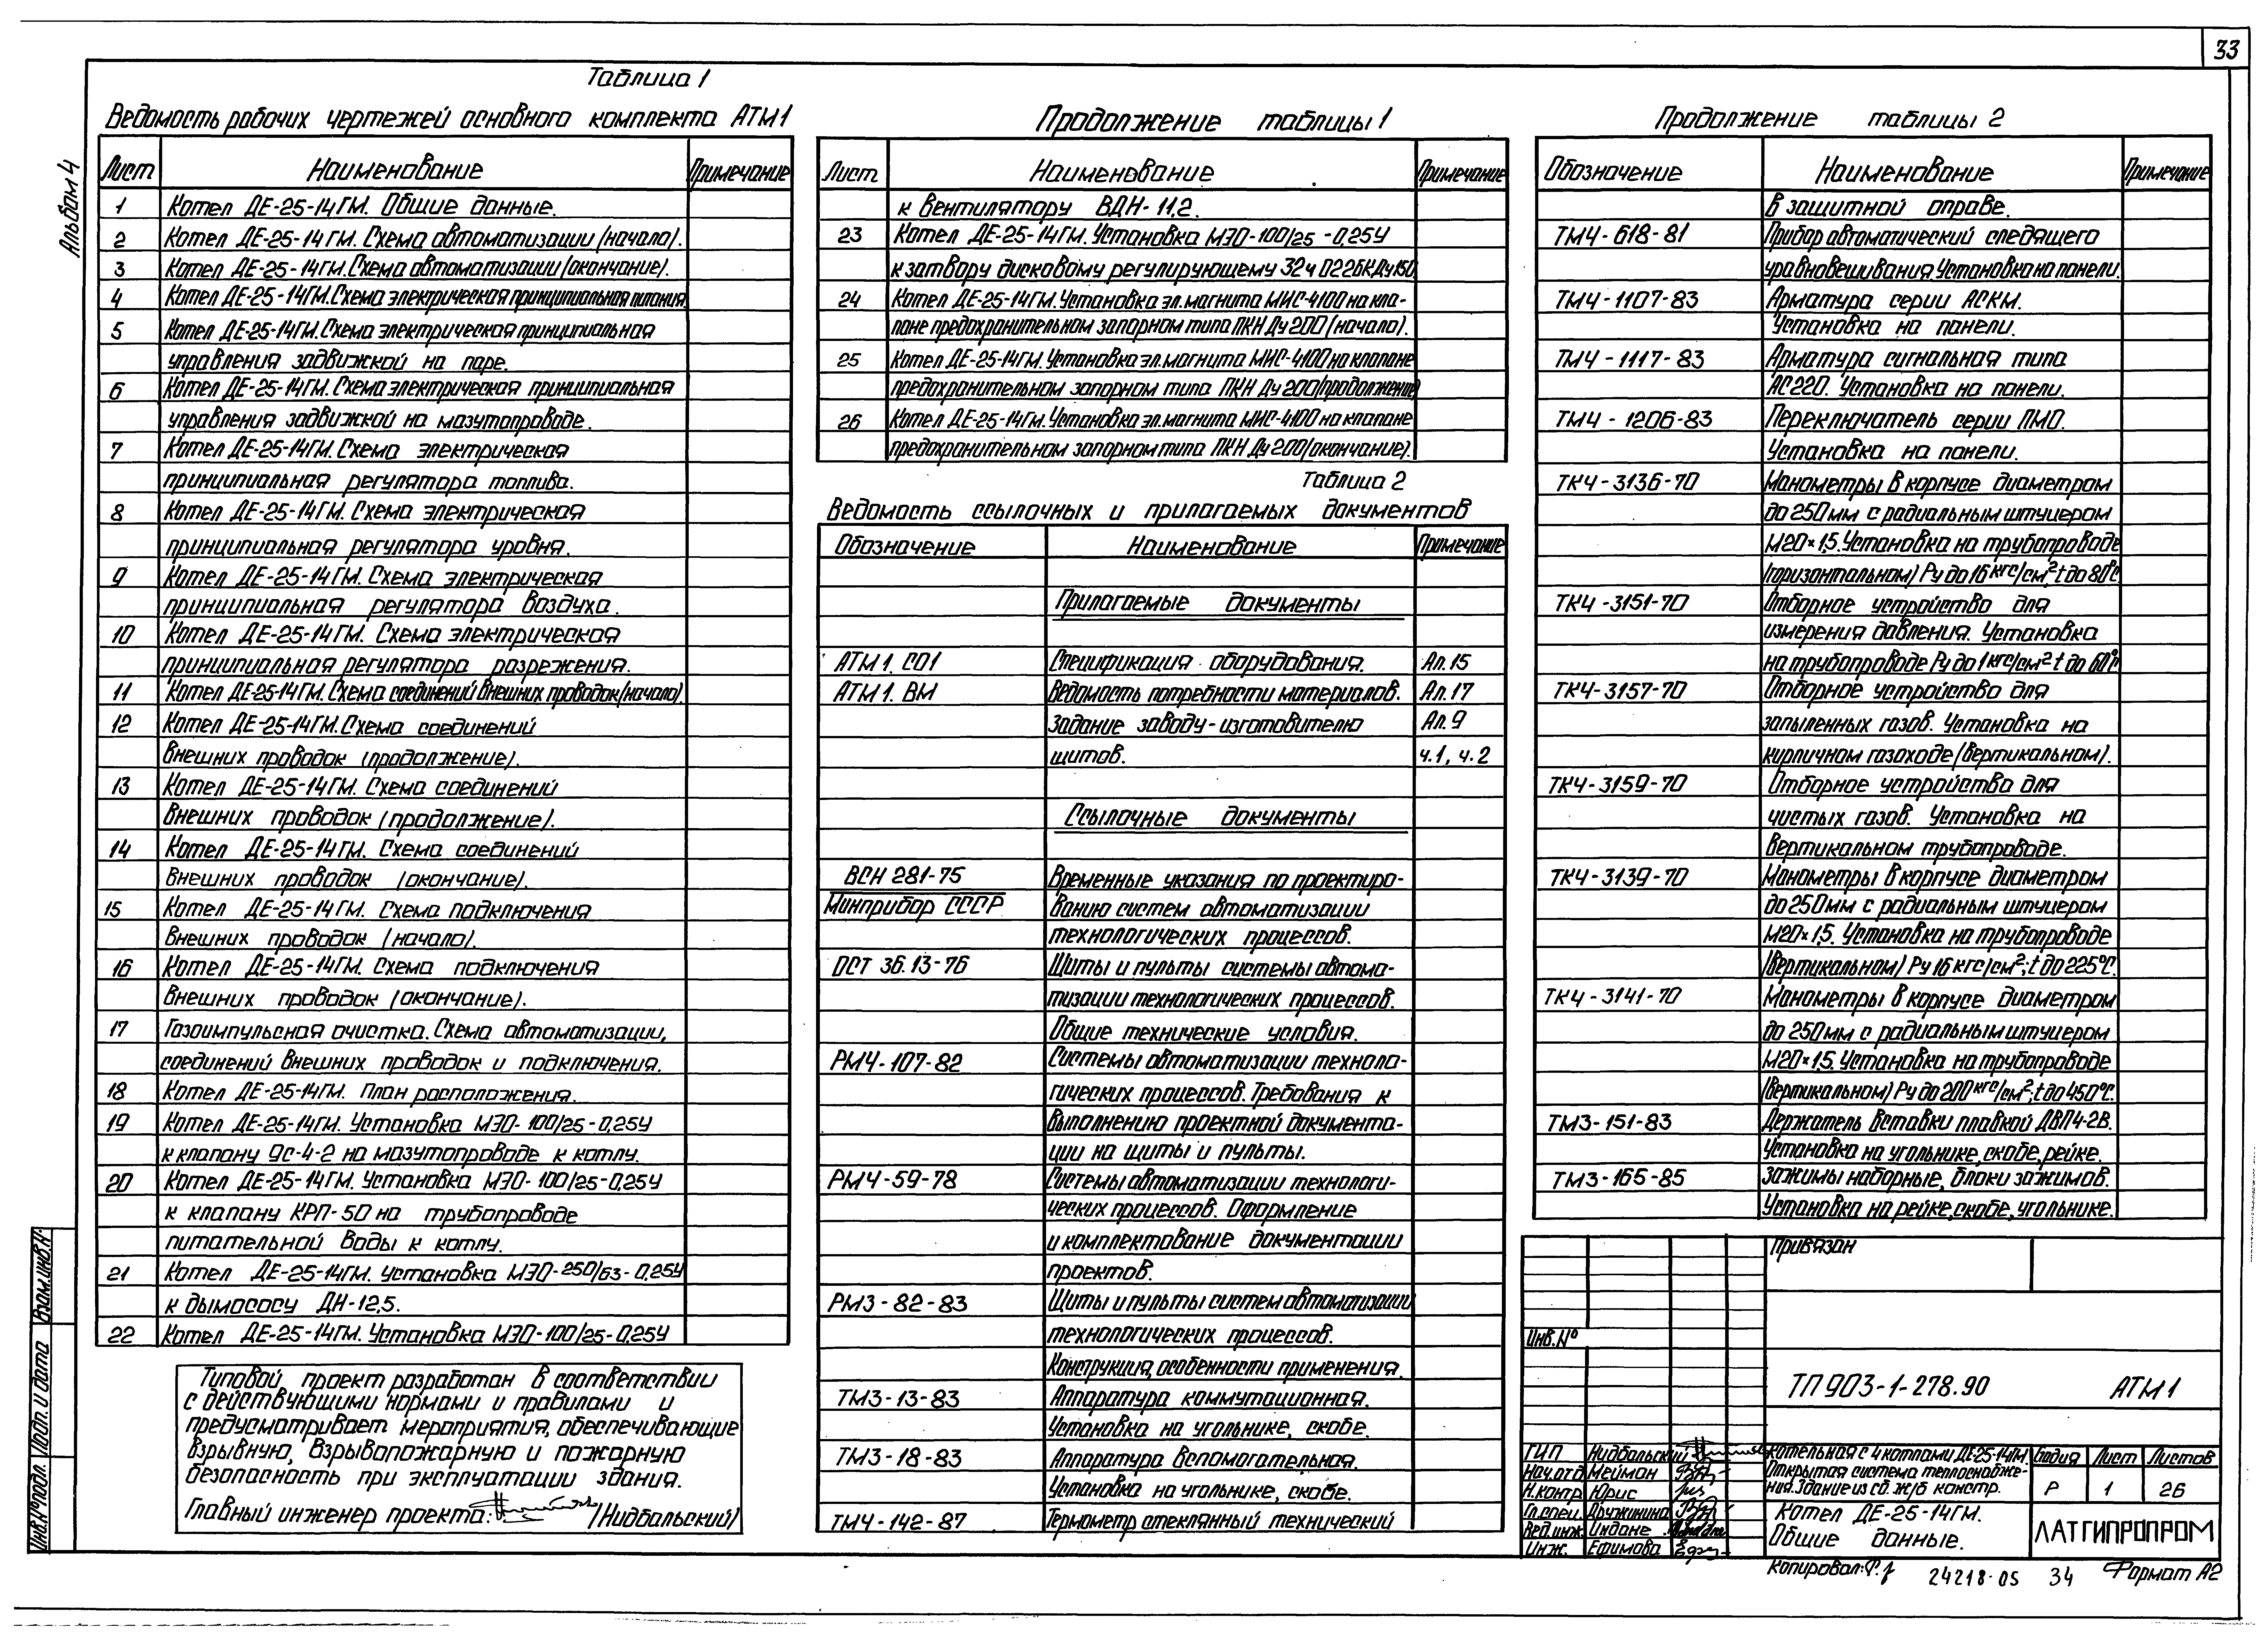 33
Альбом 4
Таблица 1
Ведомость рабочих чертежей основного комплекта АТМ1
Лист Наименование Примечание
1 Котел ДЕ-25-14ГМ. Общие данные.
2 Котел ДЕ-25-14ГМ. Схема автоматизации (начало).
3 Котел ДЕ-25-14ГМ. Схема автоматизации (окончание).
4 Котел ДЕ-25-14ГМ. Схема электрическая принципиальная питания
5 Котел ДЕ-25-14ГМ. Схема электрическая принципиальная
управления задвижкой на паре.
6 Котел ДЕ-25-14ГМ. Схема электрическая принципиальная
управления задвижкой на мазутопроводе.
7 Котел ДЕ-25-14ГМ. Схема электрическая
принципиальная регулятора топлива.
8 Котел ДЕ-25-14ГМ. Схема электрическая
принципиальная регулятора уровня.
9 Котел ДЕ-25-14ГМ. Схема электрическая
принципиальная регулятора воздуха.
10 Котел ДЕ-25-14ГМ. Схема электрическая
принципиальная регулятора разрежения.
11 Котел ДЕ-25-14ГМ. Схема соединений внешних проводок (начало).
12 Котел ДЕ-25-14ГМ. Схема соединений
внешних проводок (продолжение).
13 Котел ДЕ-25-14ГМ. Схема соединений
внешних проводок (продолжение).
14 Котел ДЕ-25-14ГМ. Схема соединений
внешних проводок (окончание).
15 Котел ДЕ-25-14ГМ. Схема подключения
внешних проводок (начало).
16 Котел ДЕ-25-14ГМ. Схема подключения
внешних проводок (окончание).
17 Газоимпульсная очистка. Схема автоматизации,
соединений внешних проводок и подключения.
18 Котел ДЕ-25-14ГМ. План расположения.
19 Котел ДЕ-25-14ГМ. Установка МЭО-100/25-0,25У
к клапану 9с-4-2 на мазутопроводе к котлу.
20 Котел ДЕ-25-14ГМ. Установка МЭО-100/25-0,25У
к клапану КРП-50 на трубопроводе
питательной воды к котлу.
21 Котел ДЕ-25-14ГМ. Установка МЭО-250/63-0,25У
к дымососу ДН-12,5.
22 Котел ДЕ-25-14ГМ. Установка МЭО-100/25-0,25У
Типовой проект разработан в соответствии
с действующими нормами и правилами и
предусматривает мероприятия, обеспечивающие
взрывную, взрывопожарную и пожарную
безопасность при эксплуатации здания.
Главный инженер проекта: /Нидбальский/
Продолжение таблицы 1
Лист Наименование Примечание
к вентилятору ВДН-11,2.
23 Котел ДЕ-25-14ГМ. Установка МЭО-100/25-0,25У
к затвору дисковому регулирующему 32ч 022бк Ду150
24 Котел ДЕ-25-14ГМ. Установка эл.магнита МИС-4100 на кла-
пане предохранительном запорном типа ПКН Ду 200 (начало).
25 Котел ДЕ-25-14ГМ. Установка эл.магнита МИС-4100 на клапане
предохранительном запорном типа ПКН Ду 200 (продолжение)
26 Котел ДЕ-25-14ГМ. Установка эл.магнита МИС-4100 на клапане
предохранительном запорном типа ПКН Ду 200 (окончание).
Таблица 2
Ведомость ссылочных и прилагаемых документов
Обозначение Наименование Примечание
Прилагаемые документы
АТМ1. СО1 Спецификация оборудования. Ал.15
АТМ1. ВМ Ведомость потребности материалов. Ал.17
Задание заводу-изготовителю Ал.9
щитов. ч.1, ч.2
Ссылочные документы
ВСН 281-75 Временные указания по проектиро-
Минприбор СССР ванию систем автоматизации
технологических процессов.
ОСТ 36.13-76 Щиты и пульты системы автома-
тизации технологических процессов.
Общие технические условия.
РМ4-107-82 Системы автоматизации техноло-
гических процессов. Требования к
выполнению проектной документа-
ции на щиты и пульты.
РМ4-59-78 Системы автоматизации технологи-
ческих процессов. Оформление
и комплектование документации
проектов.
РМ3-82-83 Щиты и пульты систем автоматизации
технологических процессов.
Конструкция, особенности применения.
ТМ3-13-83 Аппаратура коммутационная.
Установка на угольнике, скобе.
ТМ3-18-83 Аппаратура вспомогательная.
Установка на угольнике, скобе.
ТМ4-142-87 Термометр стеклянный технический
Продолжение таблицы 2
Обозначение Наименование Примечание
в защитной оправе.
ТМ4-618-81 Прибор автоматический следящего
уравновешивания. Установка на панели.
ТМ4-1107-83 Арматура серии АСКМ.
Установка на панели.
ТМ4-1117-83 Арматура сигнальная типа
АС220. Установка на панели.
ТМ4-1206-83 Переключатель серии ПМО.
Установка на панели.
ТК4-3136-70 Манометры в корпусе диаметром
до 250мм с радиальным штуцером
М20×1,5. Установка на трубопроводе
(горизонтальном) Ру до 16 кгс/см², t до 80°С
ТК4-3151-70 Отборное устройство для
измерения давления. Установка
на трубопроводе Ру до 1 кгс/см² t до 60°С
ТК4-3157-70 Отборное устройство для
запыленных газов. Установка на
кирпичном газоходе (вертикальном).
ТК4-3159-70 Отборное устройство для
чистых газов. Установка на
вертикальном трубопроводе.
ТК4-3139-70 Манометры в корпусе диаметром
до 250мм с радиальным штуцером
М20×1,5. Установка на трубопроводе
(вертикальном) Ру 16 кгс/см²; t до 225°С.
ТК4-3141-70 Манометры в корпусе диаметром
до 250мм с радиальным штуцером
М20×1,5. Установка на трубопроводе
(вертикальном) Ру до 200 кгс/см²; t до 450°С.
ТМ3-151-83 Держатель вставки плавкой ДВП4-2В.
Установка на угольнике, скобе, рейке.
ТМ3-165-85 Зажимы наборные, блоки зажимов.
Установка на рейке, скобе, угольнике.
Привязан
Инв.№
ТП 903-1-278.90 АТМ1
ГИП Нидбальский
Нач.отд Мейман
Н.контр Юрис
Гл.спец. Дружинина
Вед.инж. Индане
Инж. Ефимова
Котельная с 4 котлами ДЕ-25-14ГМ.
Открытая система теплоснабже-
ния. Здание из сб. ж/б констр.
Стадия Лист Листов
Р 1 26
Котел ДЕ-25-14ГМ.
Общие данные.
ЛАТГИПРОПРОМ
Копировал: 24218-05 34 Формат А2
Взам.инв.№
Подп. и дата
Инв.№ подл.